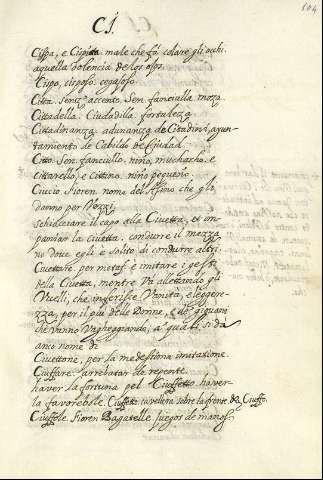 104
CI.
Cispa, e Cispita male che fà colare gli occhi.
aquella dolencia de los ojos.
Cispo, cisposo. cegajoso.
Citta. senz' accento. Sen. fanciulla moza
Cittadella. Ciudadilla. fortaleza
Cittadinanza. adunanza de Cittadini, ayun-
tamiento de Cabildo de Ciudad.
Citto. Sen. fanciullo. niño, muchacho. e
Cittarello, e cittino. niño pequeño.
Ciuccio. Fioren. nome dell'Asino che gli
danno per
schiacciare il capo alla Ciuetta, et im-
paniar la ciuetta. condurre il mezza
no doue egli è solito di condurre altri.
Ciuettare. per metaf. è imitare i gesti
della Ciuetta, mentre và allettando gli
Vccelli, che inferisse Vanità, e legge-
rezza, per il più delle Donne, è de' giouani
che vanno Vagheggiando, a' quali si dà
anco nome di
Ciuettone, per la medesima imitazione.
Ciuffare. arrebatar de repente.
hauer la fortuna pel Ciuffetto. hauer-
la fauorebole. Ciuffetto. la vellura sobre la frente. da Ciuffo.
Ciuffole. Fioren. Bagatelle. juegos de manos.